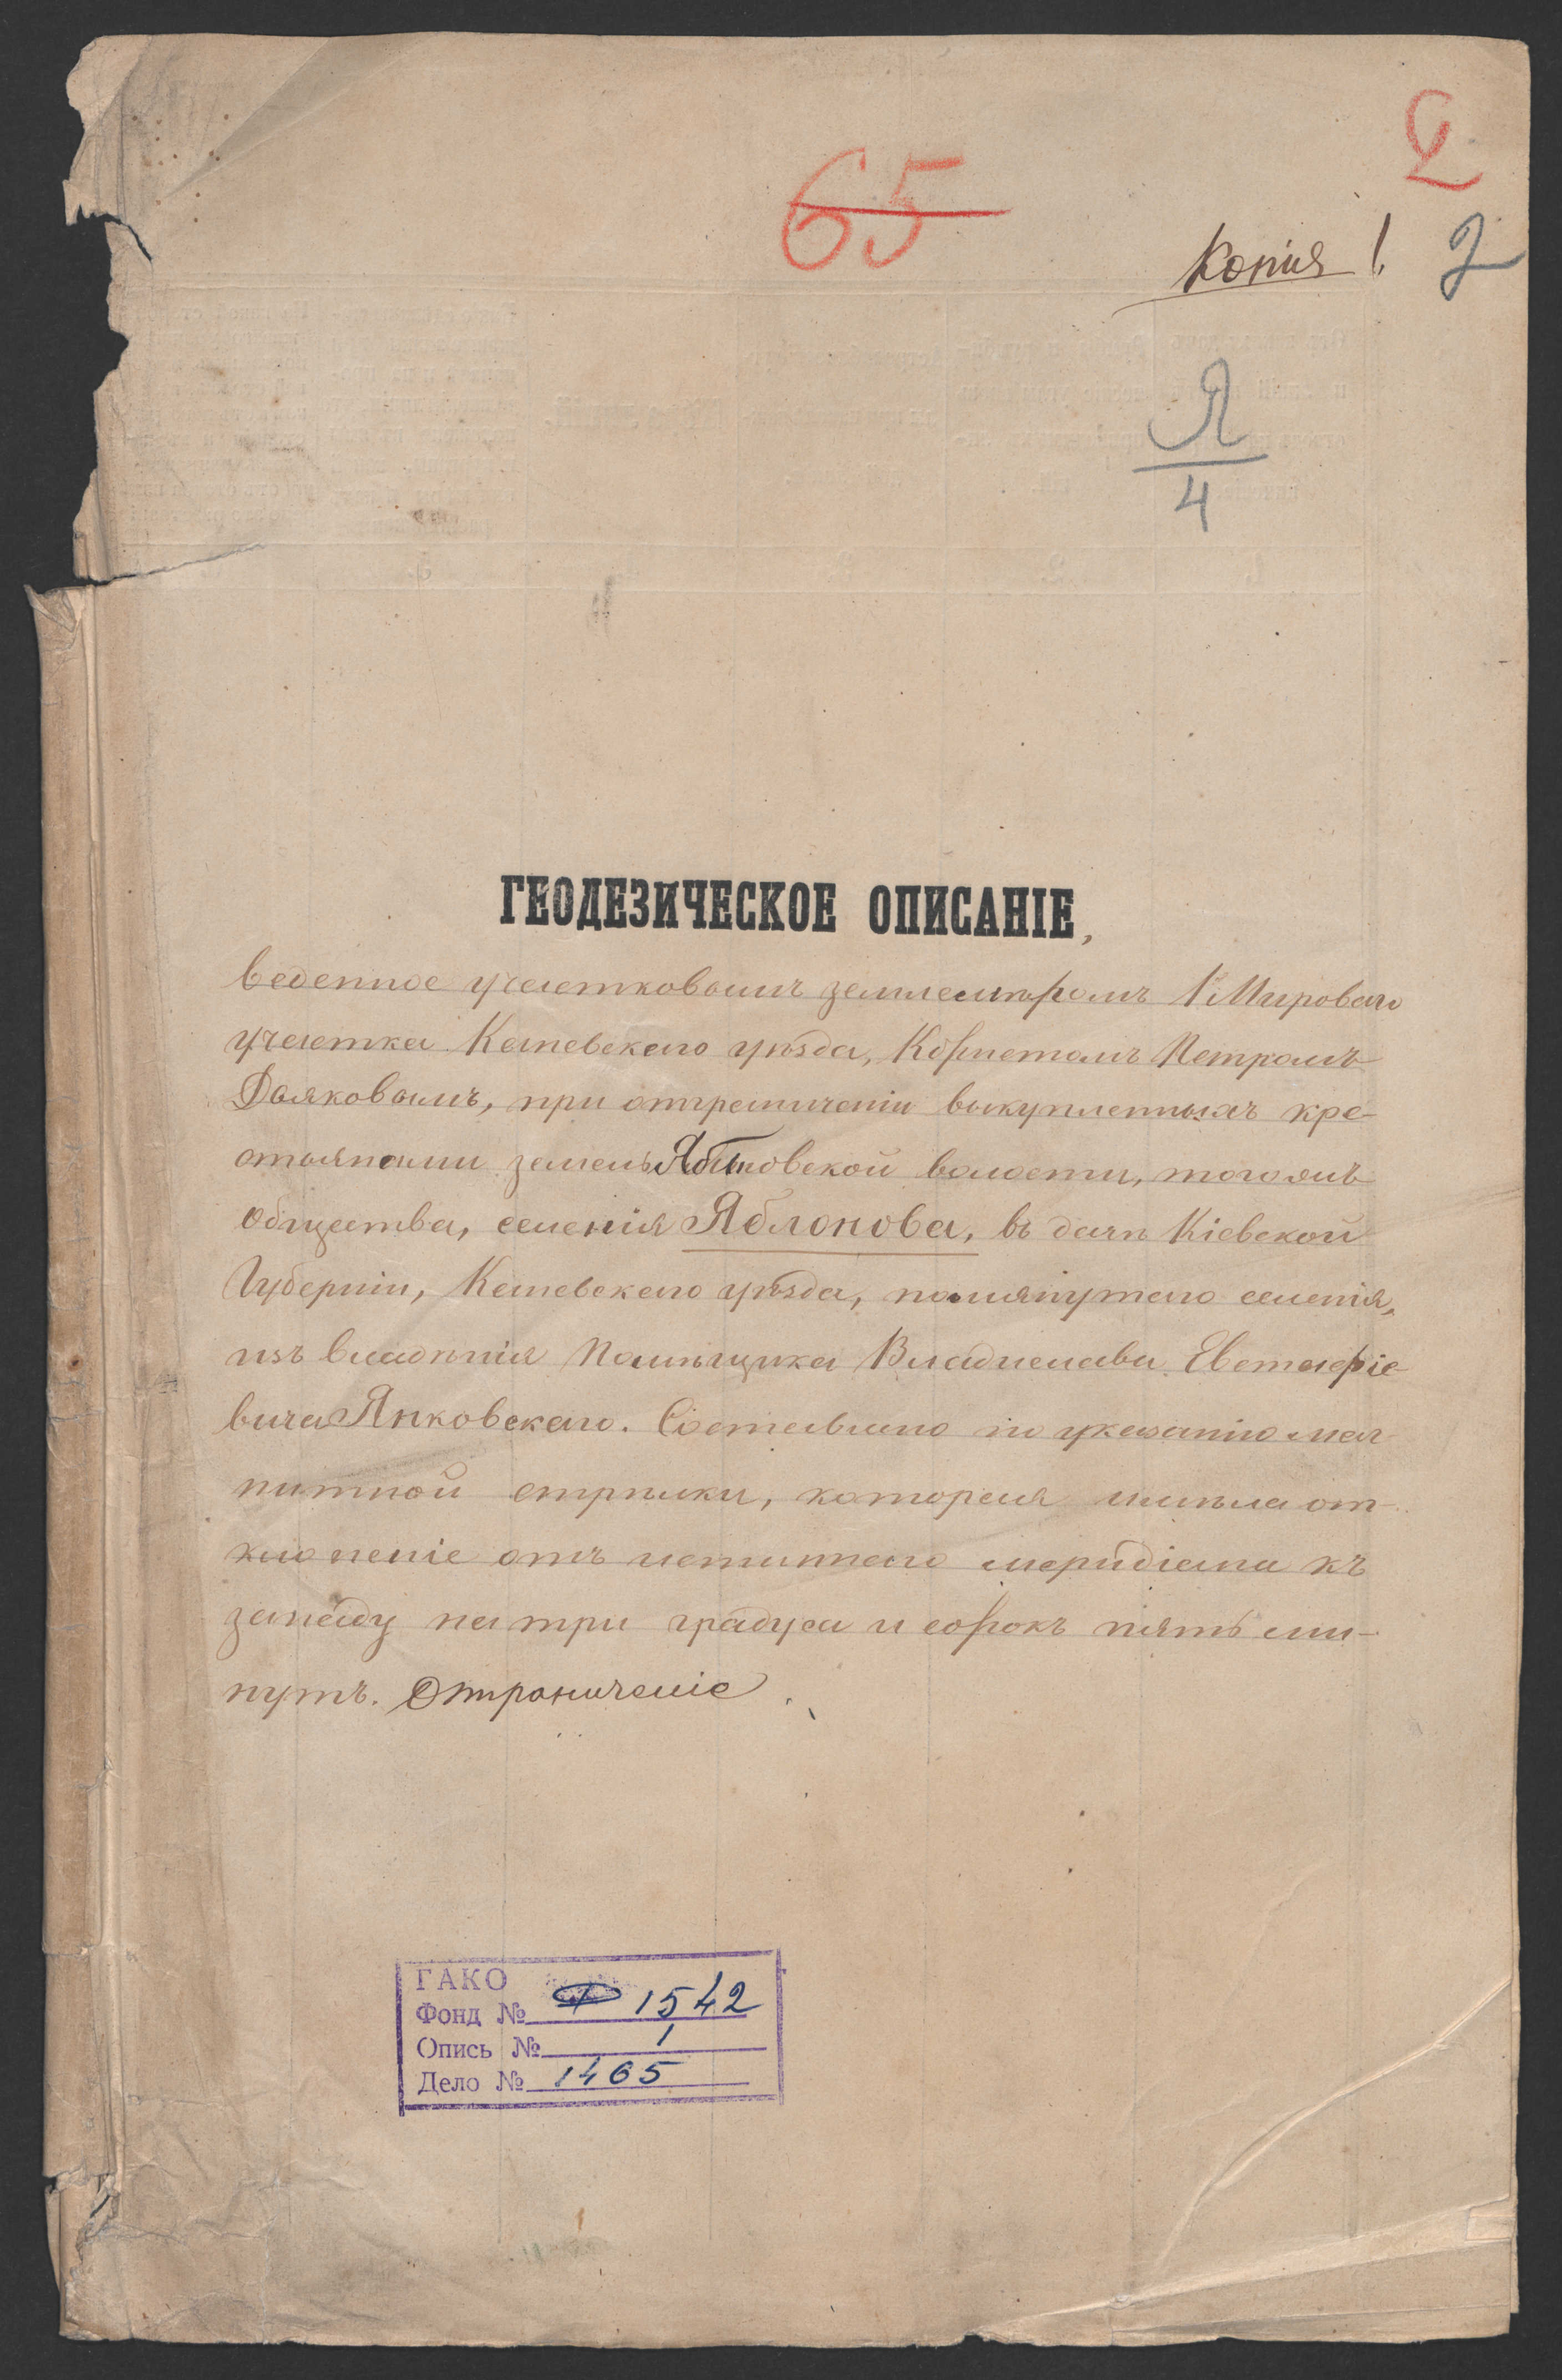 2
65
Копія 1.
2
Я
4
ГЕОДЕЗИЧЕСКОЕ ОПИСАНІЕ,
веденное участковымъ землемѣромъ 1 Мироваго
участка Каневскаго уѣзда, Корнетомъ Петромъ
при отграниченіи выкупленныхъ кре-
стьянами земель Яблоновской волости, того жъ
общества, селенія Яблонова, въ дачѣ Кіевской
Губерніи, Каневскаго уѣзда, помянутаго селенія,
изъ владѣнія Помѣщика Владислава Евстафіе-
вича Янковскаго. Составлено по указанію маг-
нитной стрѣлки, которая имѣла от-
клоненіе отъ истиннаго меридіана къ
западу на три градуса и сорокъ пять ми-
нутъ. Отграниченіе
ГАКО
Фонд № 1542
Опись № 1
Дело № 1465